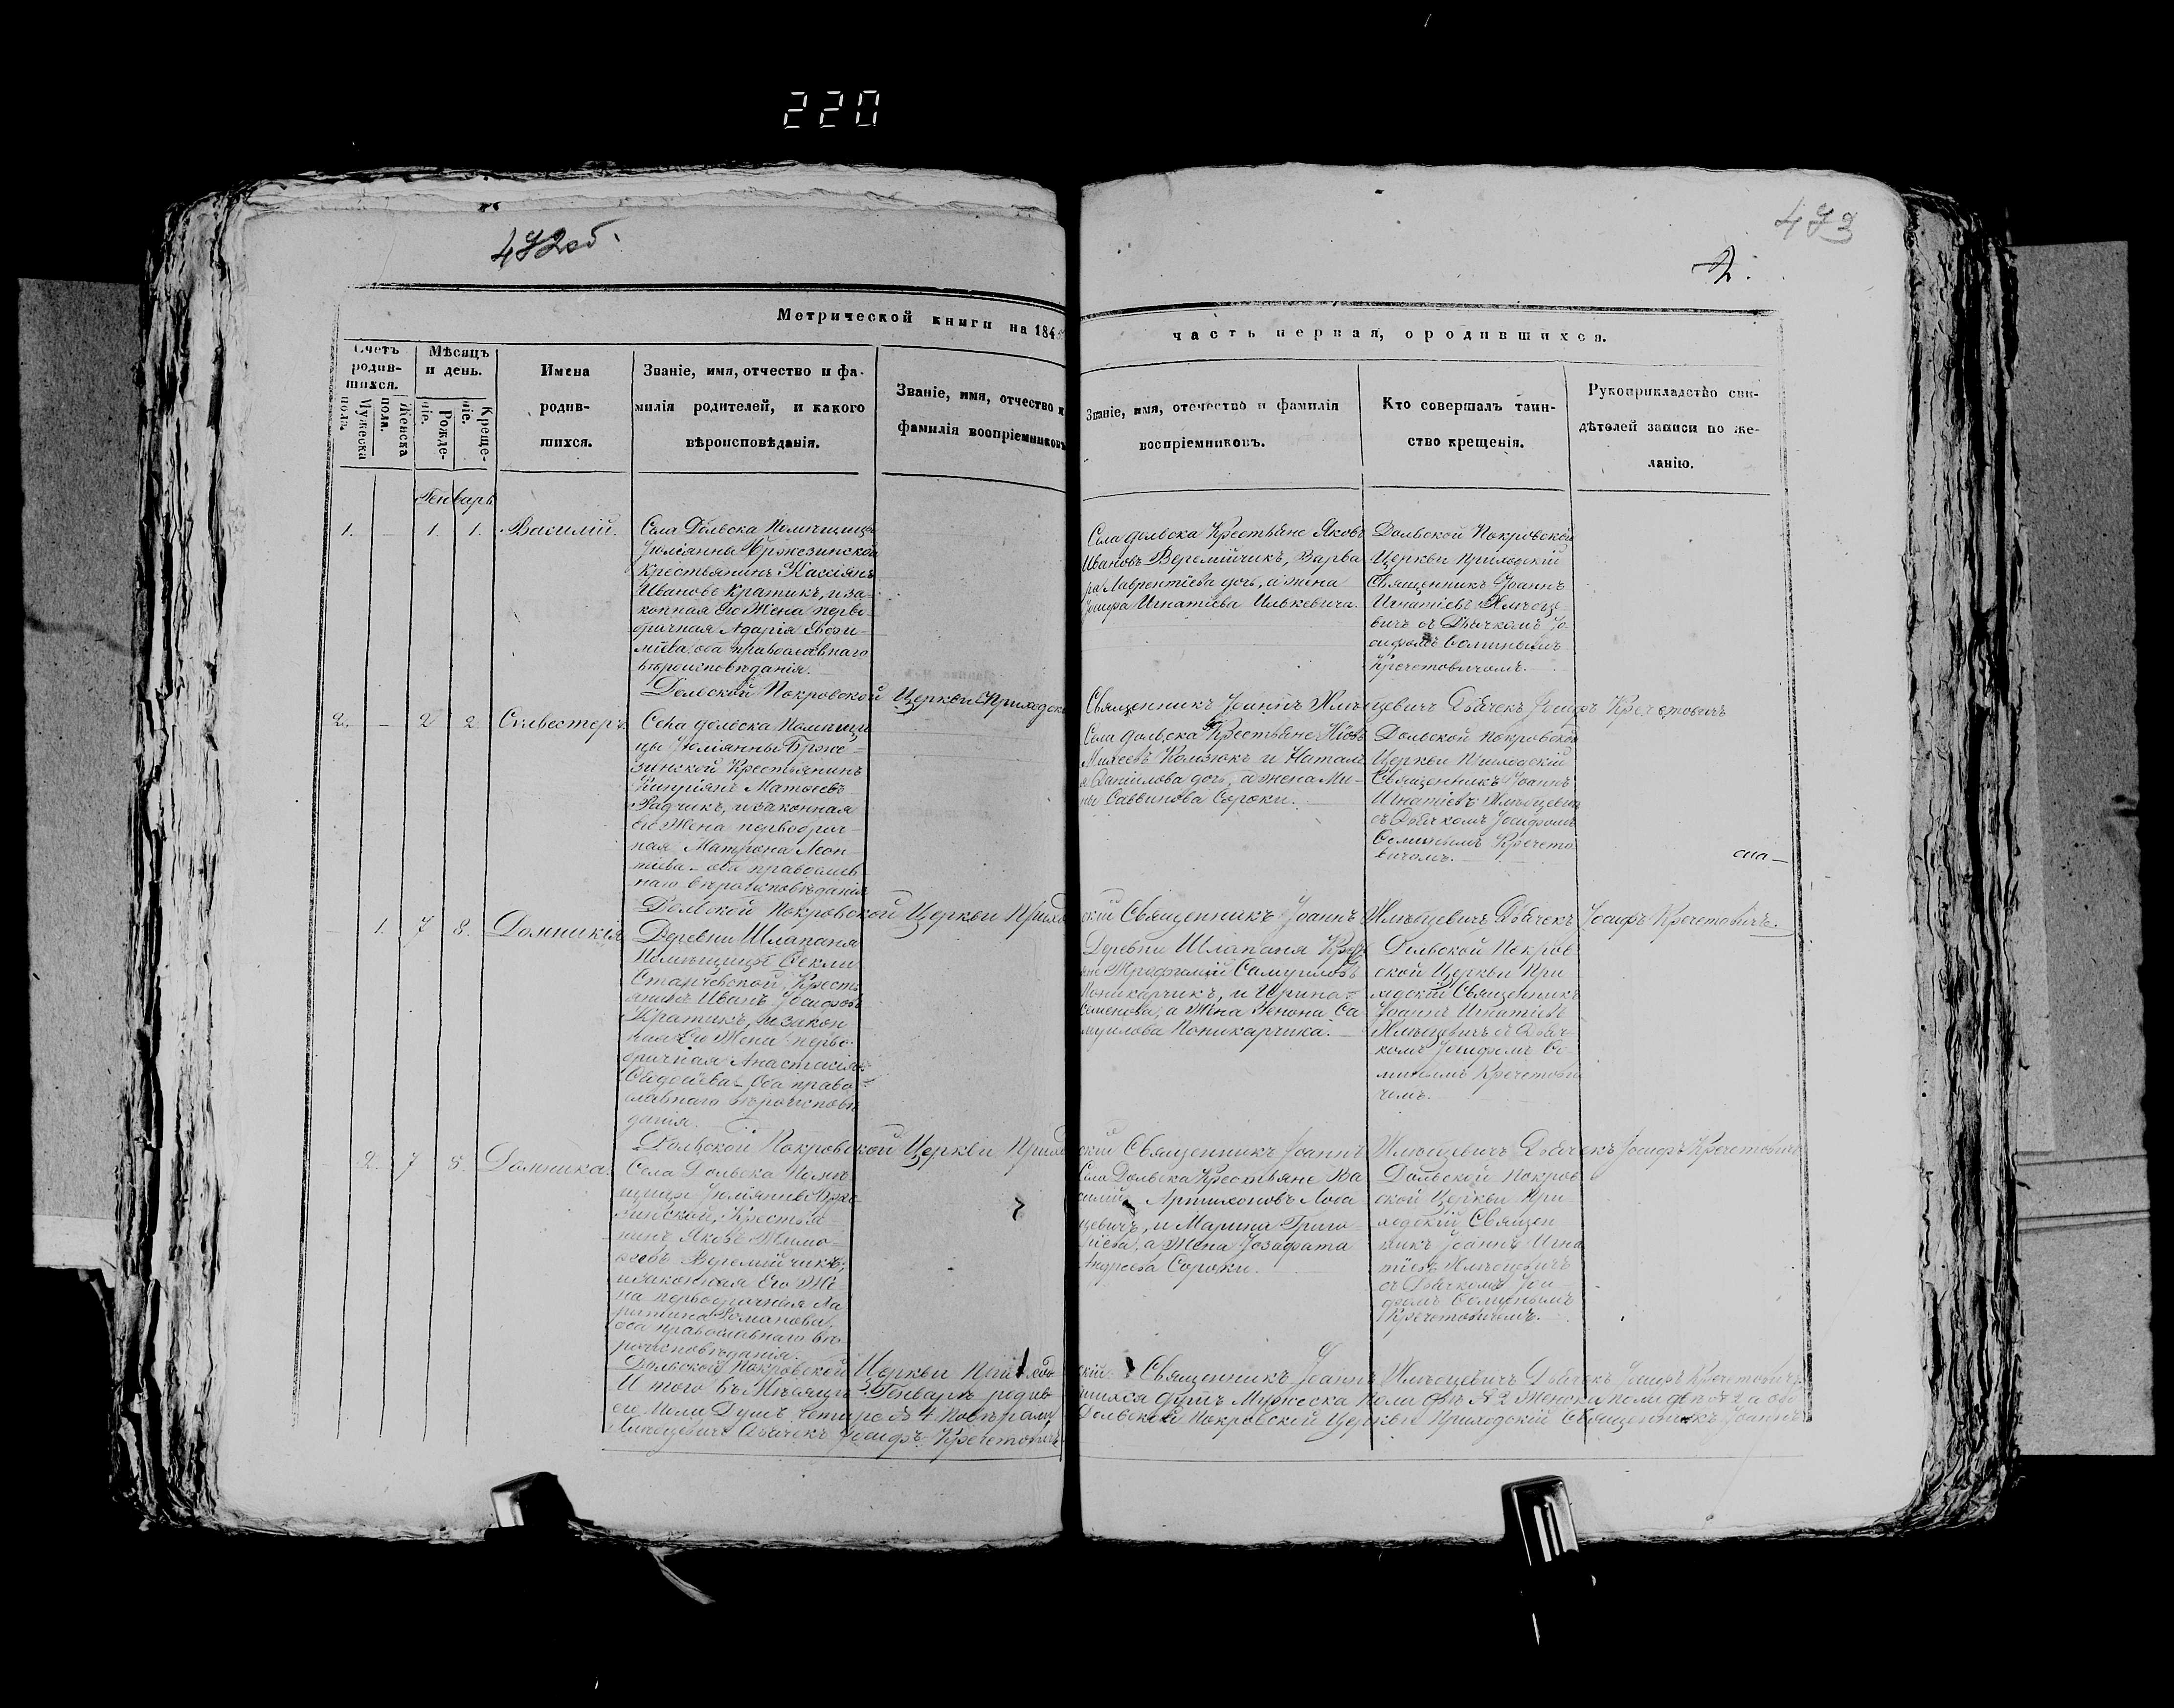 220
472об.
473
2.
Метрической книги на 184
часть первая, о родившихся.
Счетъ родив-шихся.
Мужеска пола.
Женска пола.
Мѣсяцъ и день.
Рожде-ніе.
Креще-ніе.
Имена
родив-
шихся.
Званіе, имя, отчество и фа-
милія родителей, и какого
вѣроисповѣданія.
Званіе, имя, отчество и
фамилія воопріемниковъ
Званіе, имя, отечество и фамилія
воспріемниковъ.
Кто совершалъ таин-
ство крещенія.
Рукоприкладство сви-
дѣтелей записи по же-
ланію.
Генварь
1. – 1. 1. Василій.
Села Дольска Помѣщицы
Юліанны Бржезинской
Крестьянинъ Кассіянъ
Ивановъ Кратикъ, и за-
конная Его Жена перво-
брачная Дарія Евфи-
міева, оба православнаго
вѣроисповѣданія.
Села дольска Крестьяне Яковъ
Ивановъ Веремійчикъ, Варва
ра Лаврентіева дочь, а жена
Іосифа Игнатіева Илькевича.
Дольской Покровской
Церкви Приходскій
Священникъ Іоаннъ
Игнатіевъ
вичъ съ Дьячкомъ Іо
сифомъ
Кречетовичомъ.
Дольской Покровской Церкви Приходскі Священникъ Іоаннъ Дьячекъ Іосифъ Кречетовичъ
2. – 2 2. Сильвестеръ
Села дольска Помѣщи
цы Юліянны Брже-
зинской Крестьянинъ
Кипріянъ Матѳеевъ
Радчикъ, и законная
его Жена первобрач-
ная Матрона Леон-
тіева – оба православ
наго вѣроисповѣданія
Села дольска Крестьяне
Михеевъ Колзюкъ и Натал
я Даніилова дочь, а жена Ми-
ны Саввинова Сороки.
Дольской покровской
Церкви Приходскій
Священникъ Іоаннъ
Игнатіевъ
съ Дьячкомъ Іосифомъ
Кречето
вичомъ.
спа–
Дольской Покровской Церкви Прихо скій Священникъ Іоаннъ Дьячекъ Іосифъ Кречетовичъ.
– 1. 7 8. Домникія
Деревни Шлапаня
Помѣщицы Ѳеклы
Крестья
янинъ Иванъ Іосифовъ
Кратикъ, и закон
ная Его Жена перво-
брачная Анастасія
Оба право-
славнаго вѣроисповѣ
данія.
Деревни Шлапаня Кресть
яне Трофимій Самуиловъ
Поникарчикъ, и Ирина
Семенова, а Жена Зенона Са
муилова Поникарчика.
Дольской Покров
ской Церкви При
ходскій Священникъ
Іоаннъ Игнатіевъ
съ Дьяч-
комъ Іосифомъ
Кречетови
чемъ.
Дольской Покровской Церкви Прихо скій Священникъ Іоаннъ Дьячекъ Іосифъ Кречетовичъ
2. 7 8. Домника.
Села Дольска Помѣ
щицы Юліянны Брже
зинской, Крестья-
нинъ Яковъ Тимо-
ѳеевъ Веремійчикъ,
и законная Его Же
на первобрачная Ма
Романова,
оба православнаго вѣ
роисповѣданія.
Села Дольска Крестьяне Ва
силій
и Марина Григо-
ріева, а Жена Іозафата
Андреева Сороки.
Дольской Покров
ской Церкви При-
ходскій Священ
никъ Іоаннъ Игна
тіевъ
съ Дьячкомъ Іоси-
фомъ
Кречетовичомъ.
Дольской Покровской Церкви Приходскій Священникъ Іоаннъ Дьячекъ Іосифъ Кречетовичъ
И того въ Мѣсяцѣ Генварѣ родив шихся душъ Мужеска Пола № 2 Женска пола № 2 а обо
его Пола Душъ четыре № 4 Дольской Покровской Церкви Приходскій Священникъ Іоаннъ
Дьячекъ Іосифъ Кречетовичъ